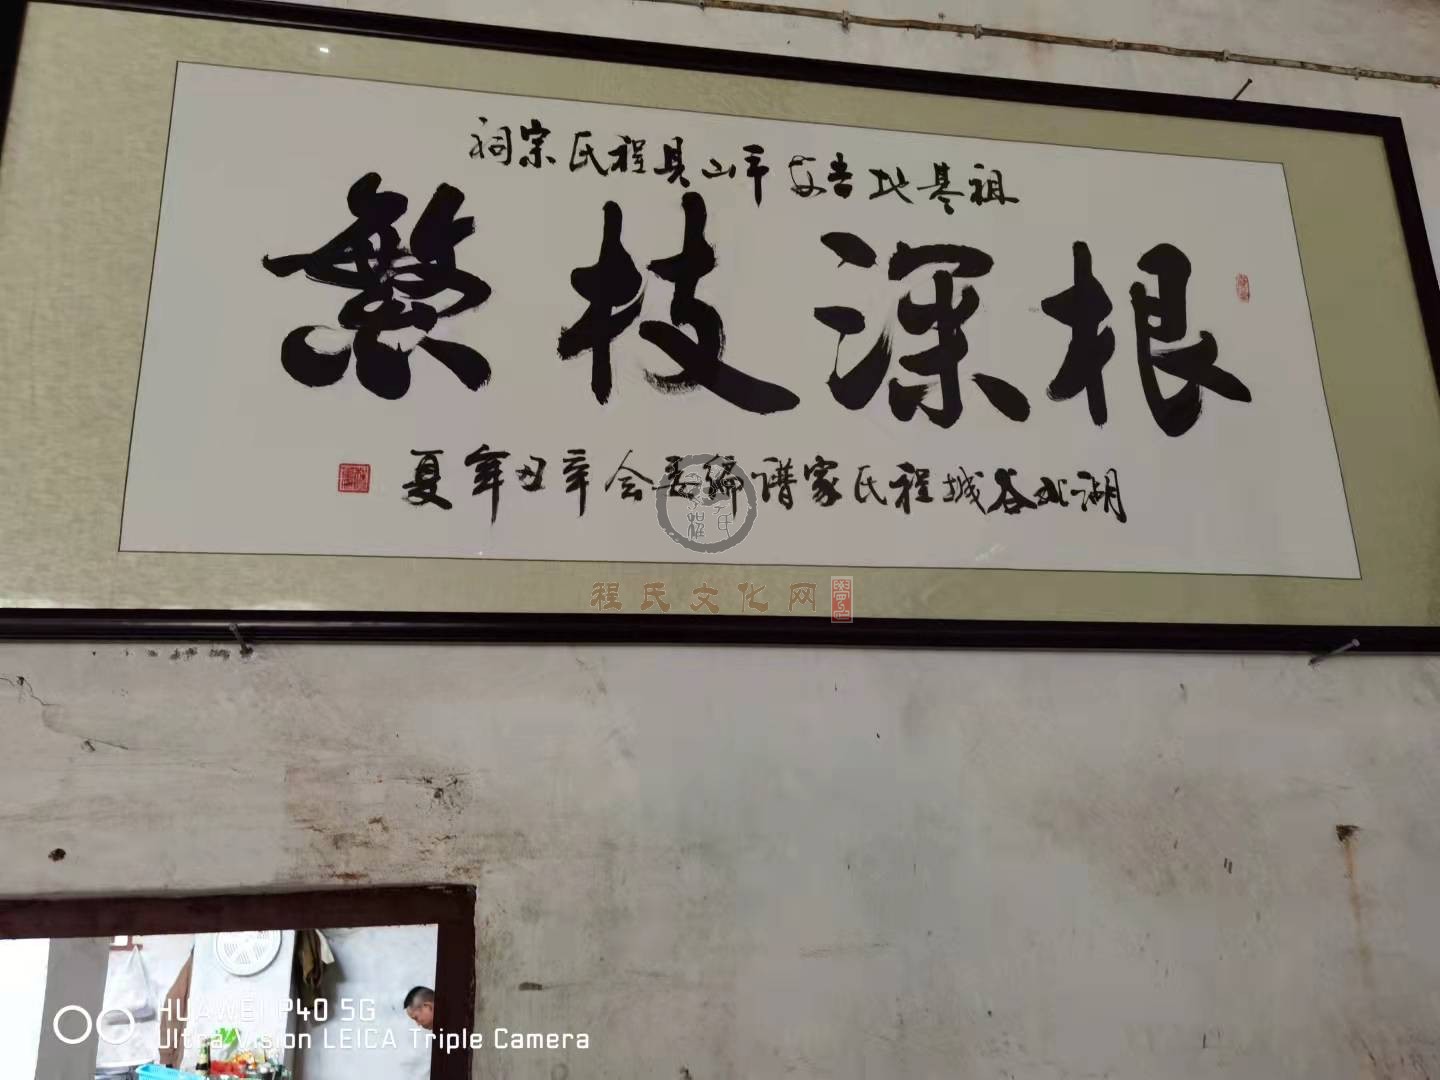 祖基地吉安平山县程氏宗祠
根深枝繁
湖北谷城程氏家谱编委会 辛丑年夏
程氏文化网
HUAWEI P40 5G
Ultra Vision LEICA Triple Camera